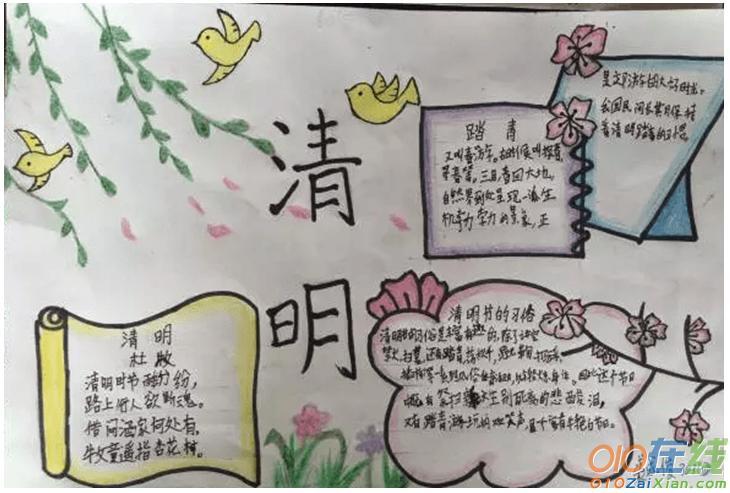 清
明
踏青
又叫春游。古时候叫探春、
寻春等。三月,春回大地,
自然界到处呈现一派生
机勃勃的景象,正
是交游的大好时光。
我国民间长期保持
着清明踏青的习惯。
清明
杜牧
清明时节雨纷纷,
路上行人欲断魂。
借问酒家何处有,
牧童遥指杏花村。
清明节的习俗
清明节的习俗是丰富有趣的,除了讲究
禁火、扫墓,还有踏青、荡秋千、
因此这个节日
生别死离的悲酸泪,
又有踏青游玩的欢笑声,
010在线
010ZaiXian.com